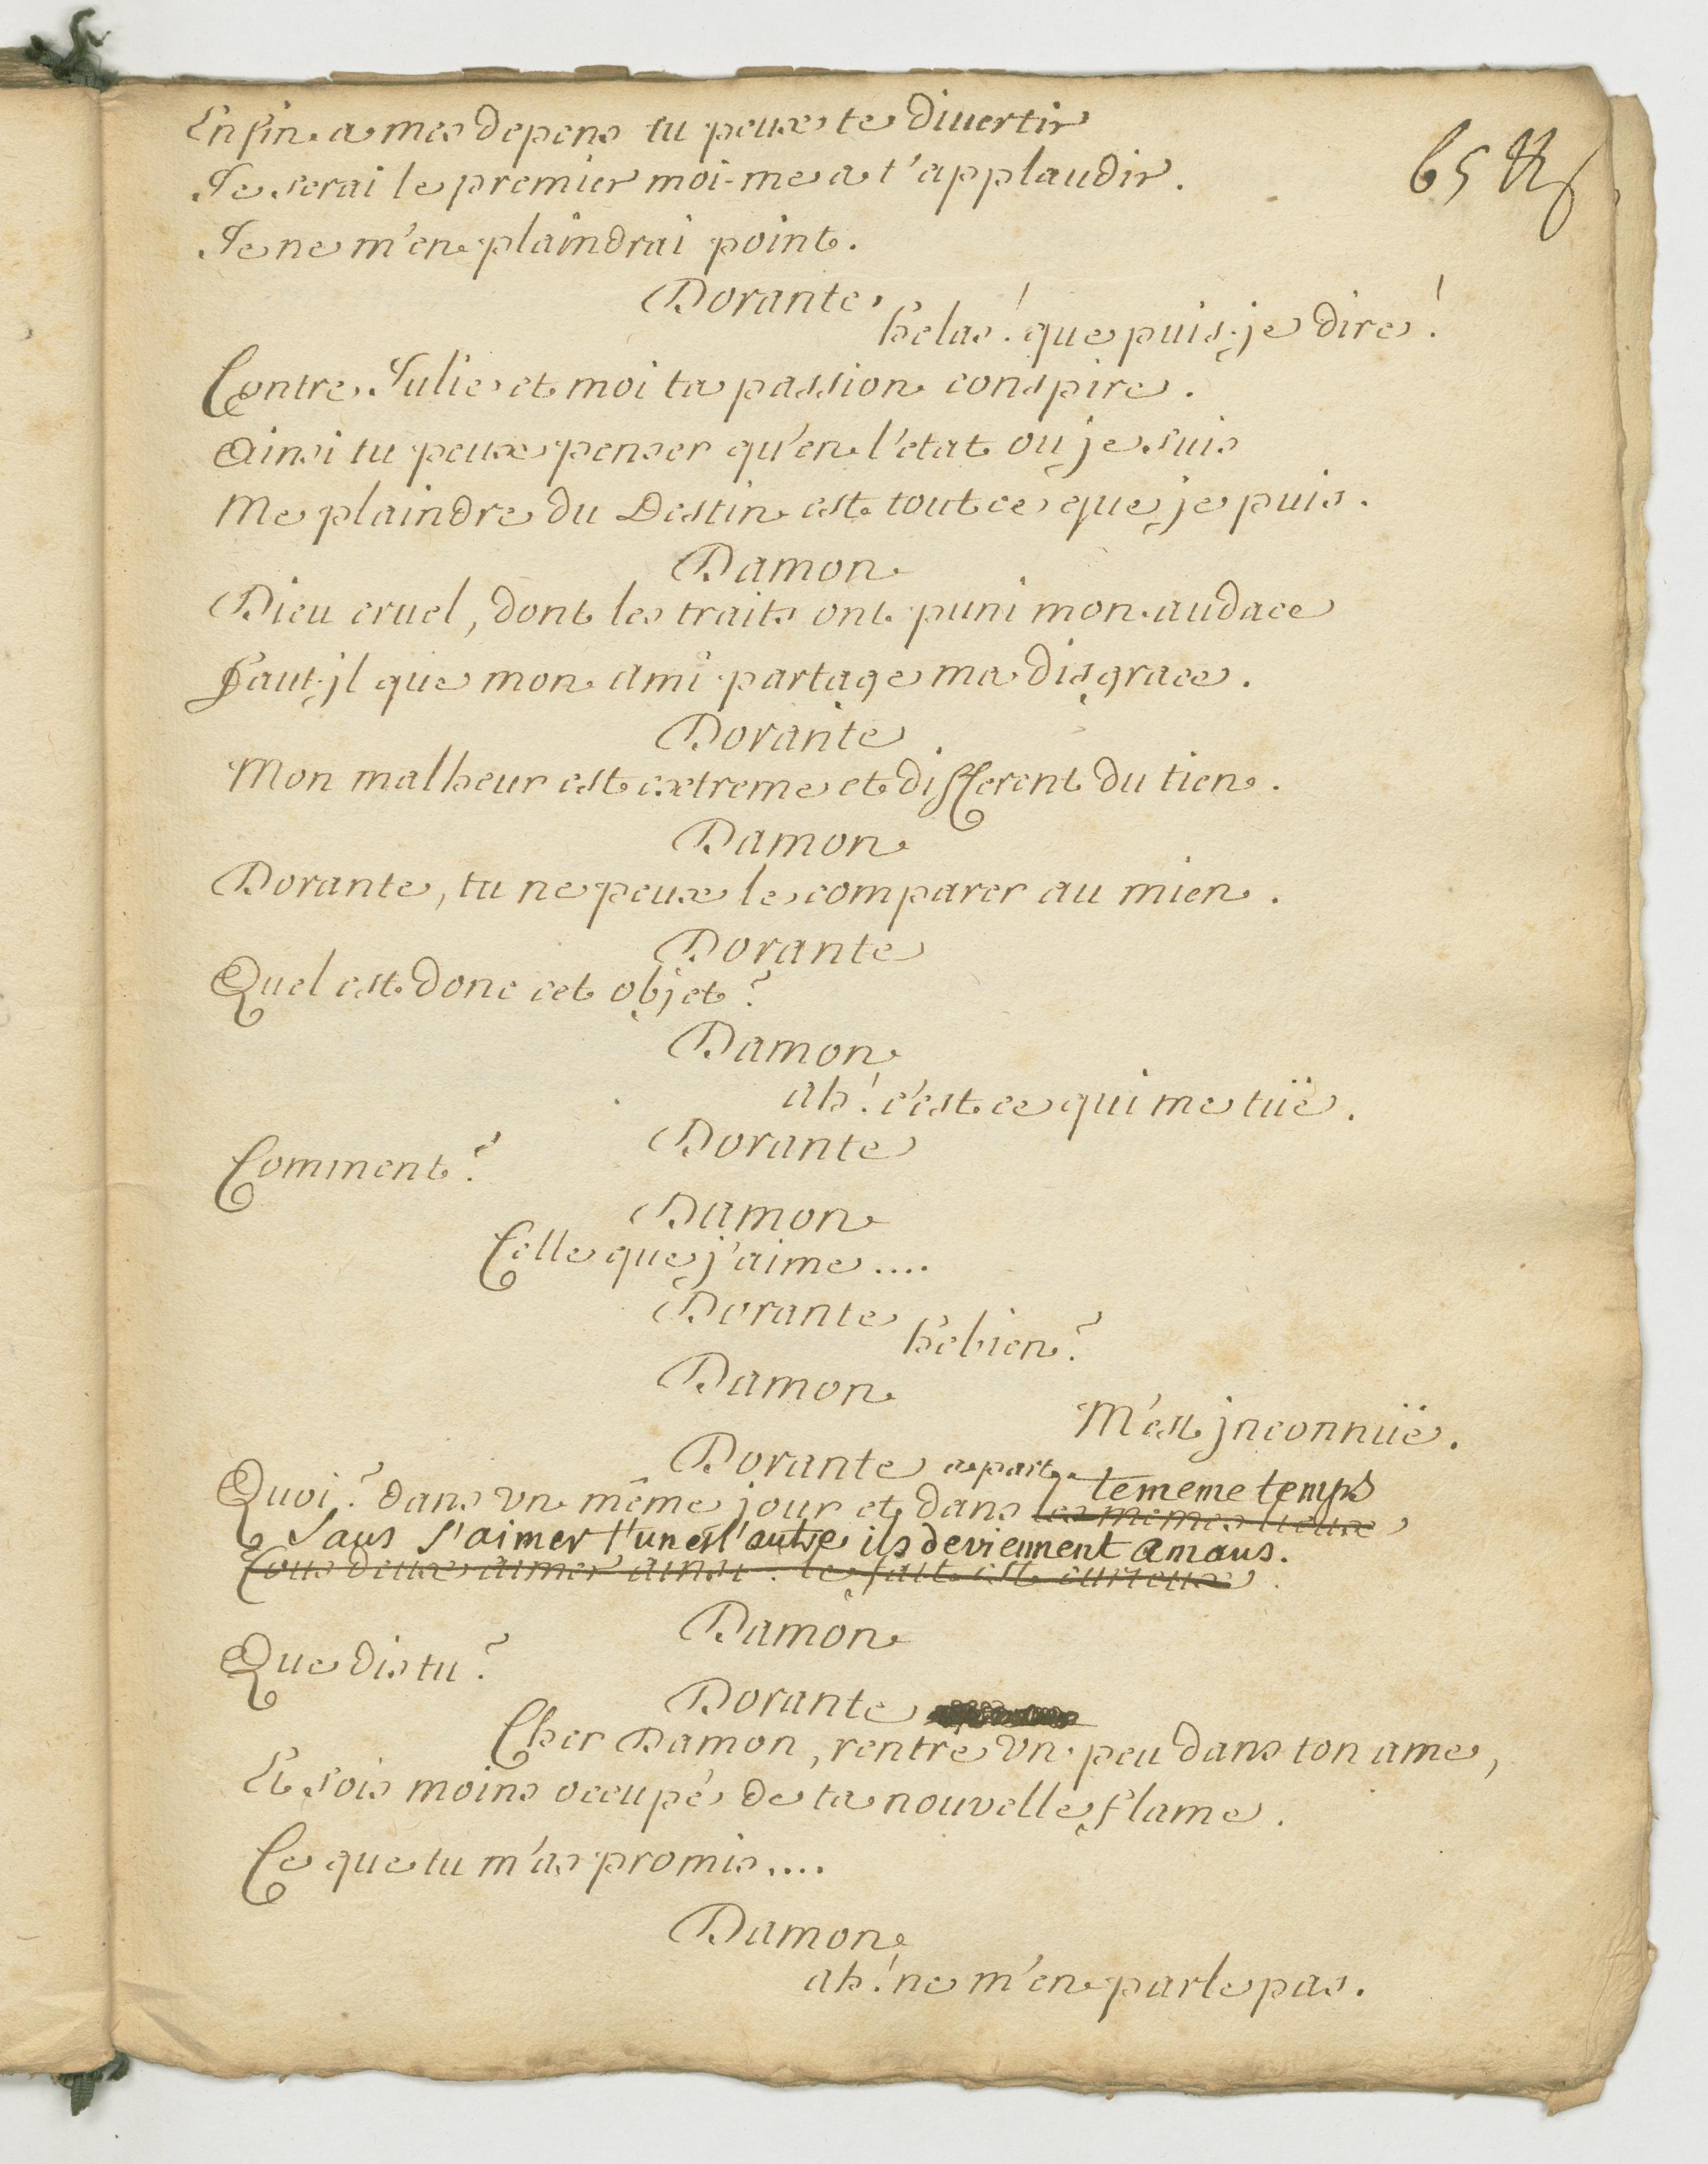 Enfin a mes depens tu peux te divertir
Je serai le premier moi-me a t'applaudir.
65
Je ne m'en plaindrai point.
Dorante
helas! que puis-je dire!
Contre Julie et moi ta passion conspire.
Ainsi tu peux penser qu'en l'etat ou je suis
Me plaindre du Destin est tout ce que je puis.
Damon
Dieu cruel, dont les traits ont puni mon audace
Faut-jl que mon ami partage ma disgrace.
Dorante
Mon malheur est extreme et different du tien.
Damon
Dorante, tu ne peux le comparer au mien.
Dorante
Quel est donc cet objet?
Damon
ah! c'est ce qui me tüe.
Dorante
Comment?
Damon
Celle que j'aime....
Dorante
hebien?
Damon
M'est jnconnüe.
Dorante a part.
le meme temps
Quoi? dans vn même jour et dans les mêmes lieux
Sans s'aimer l'un et l'autre ils deviennent amans.
Tous deux aimer ainsi. le fait est curieux.
Damon
Que dis tu?
Dorante
Cher Damon, rentre vn peu dans ton ame,
Et sois moins occupé de ta nouvelle flame.
Ce que tu m'as promis....
Damon
ah! ne m'en parle pas.